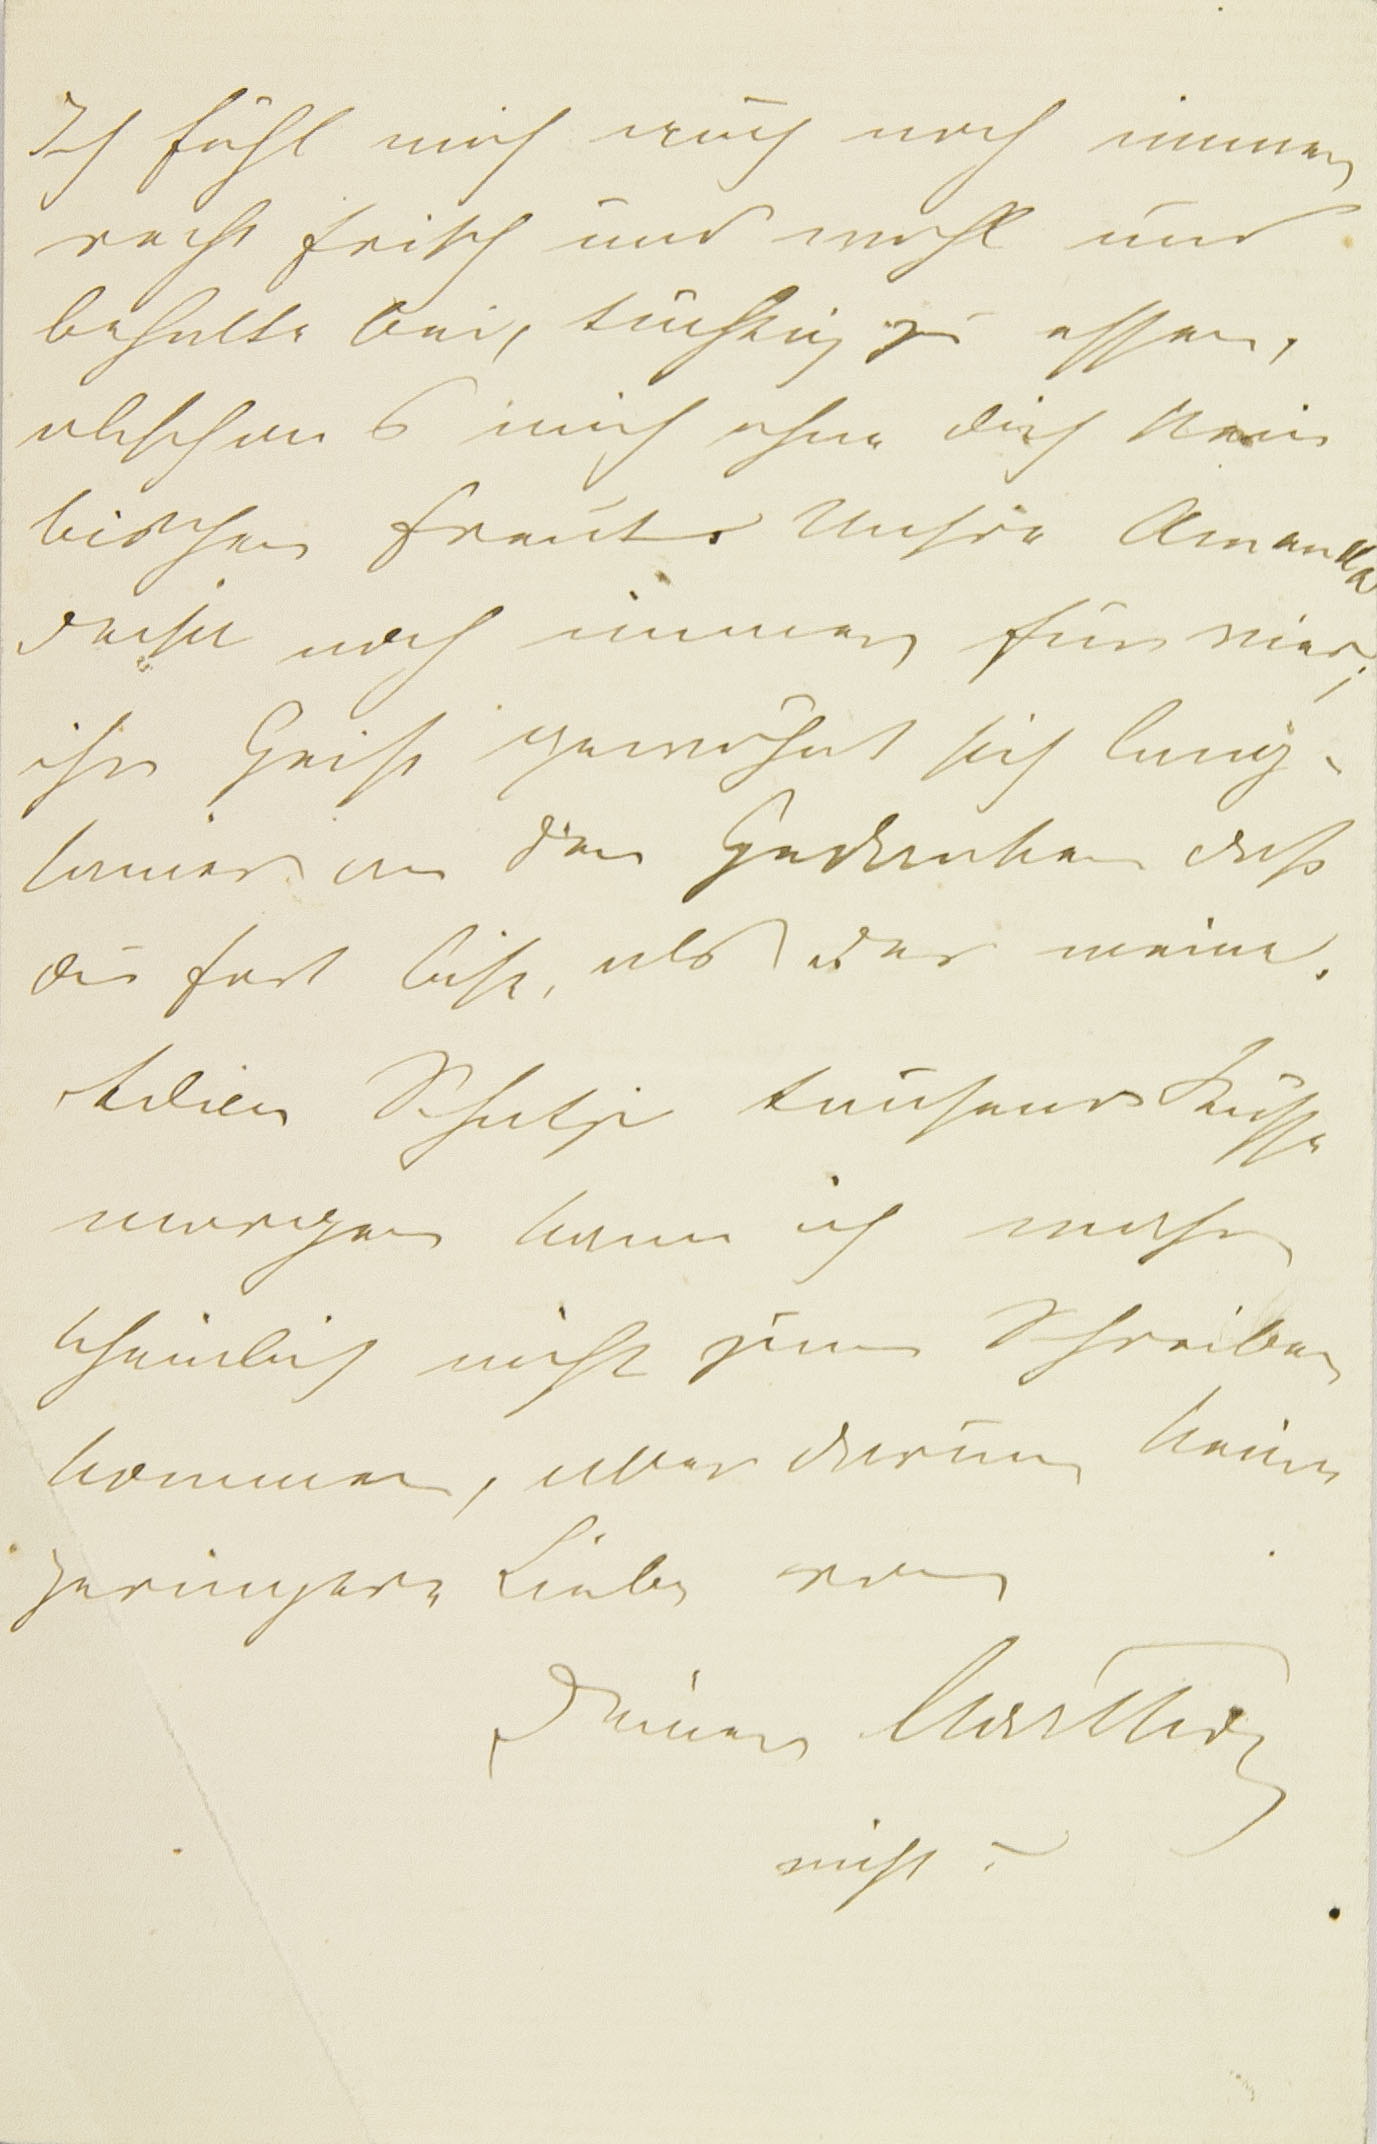 Ich fühl mich auch noch immer
recht frisch und wohl und
behalte bei, tüchtig zu essen,
obschon s mich ohne dich kein
bischen freut. Unsre Amanda
deckt noch immer für vier,
ihr Geist gewöhnt sich lang-
samer an den Gedanken daß
du fort bist, als der meine.
Adieu Schatzi tausend Küsse
morgen kann ich wahr
scheinlich nicht zum Schreiben
kommen, aber darum keine
geringere Liebe von
Deiner
nicht?